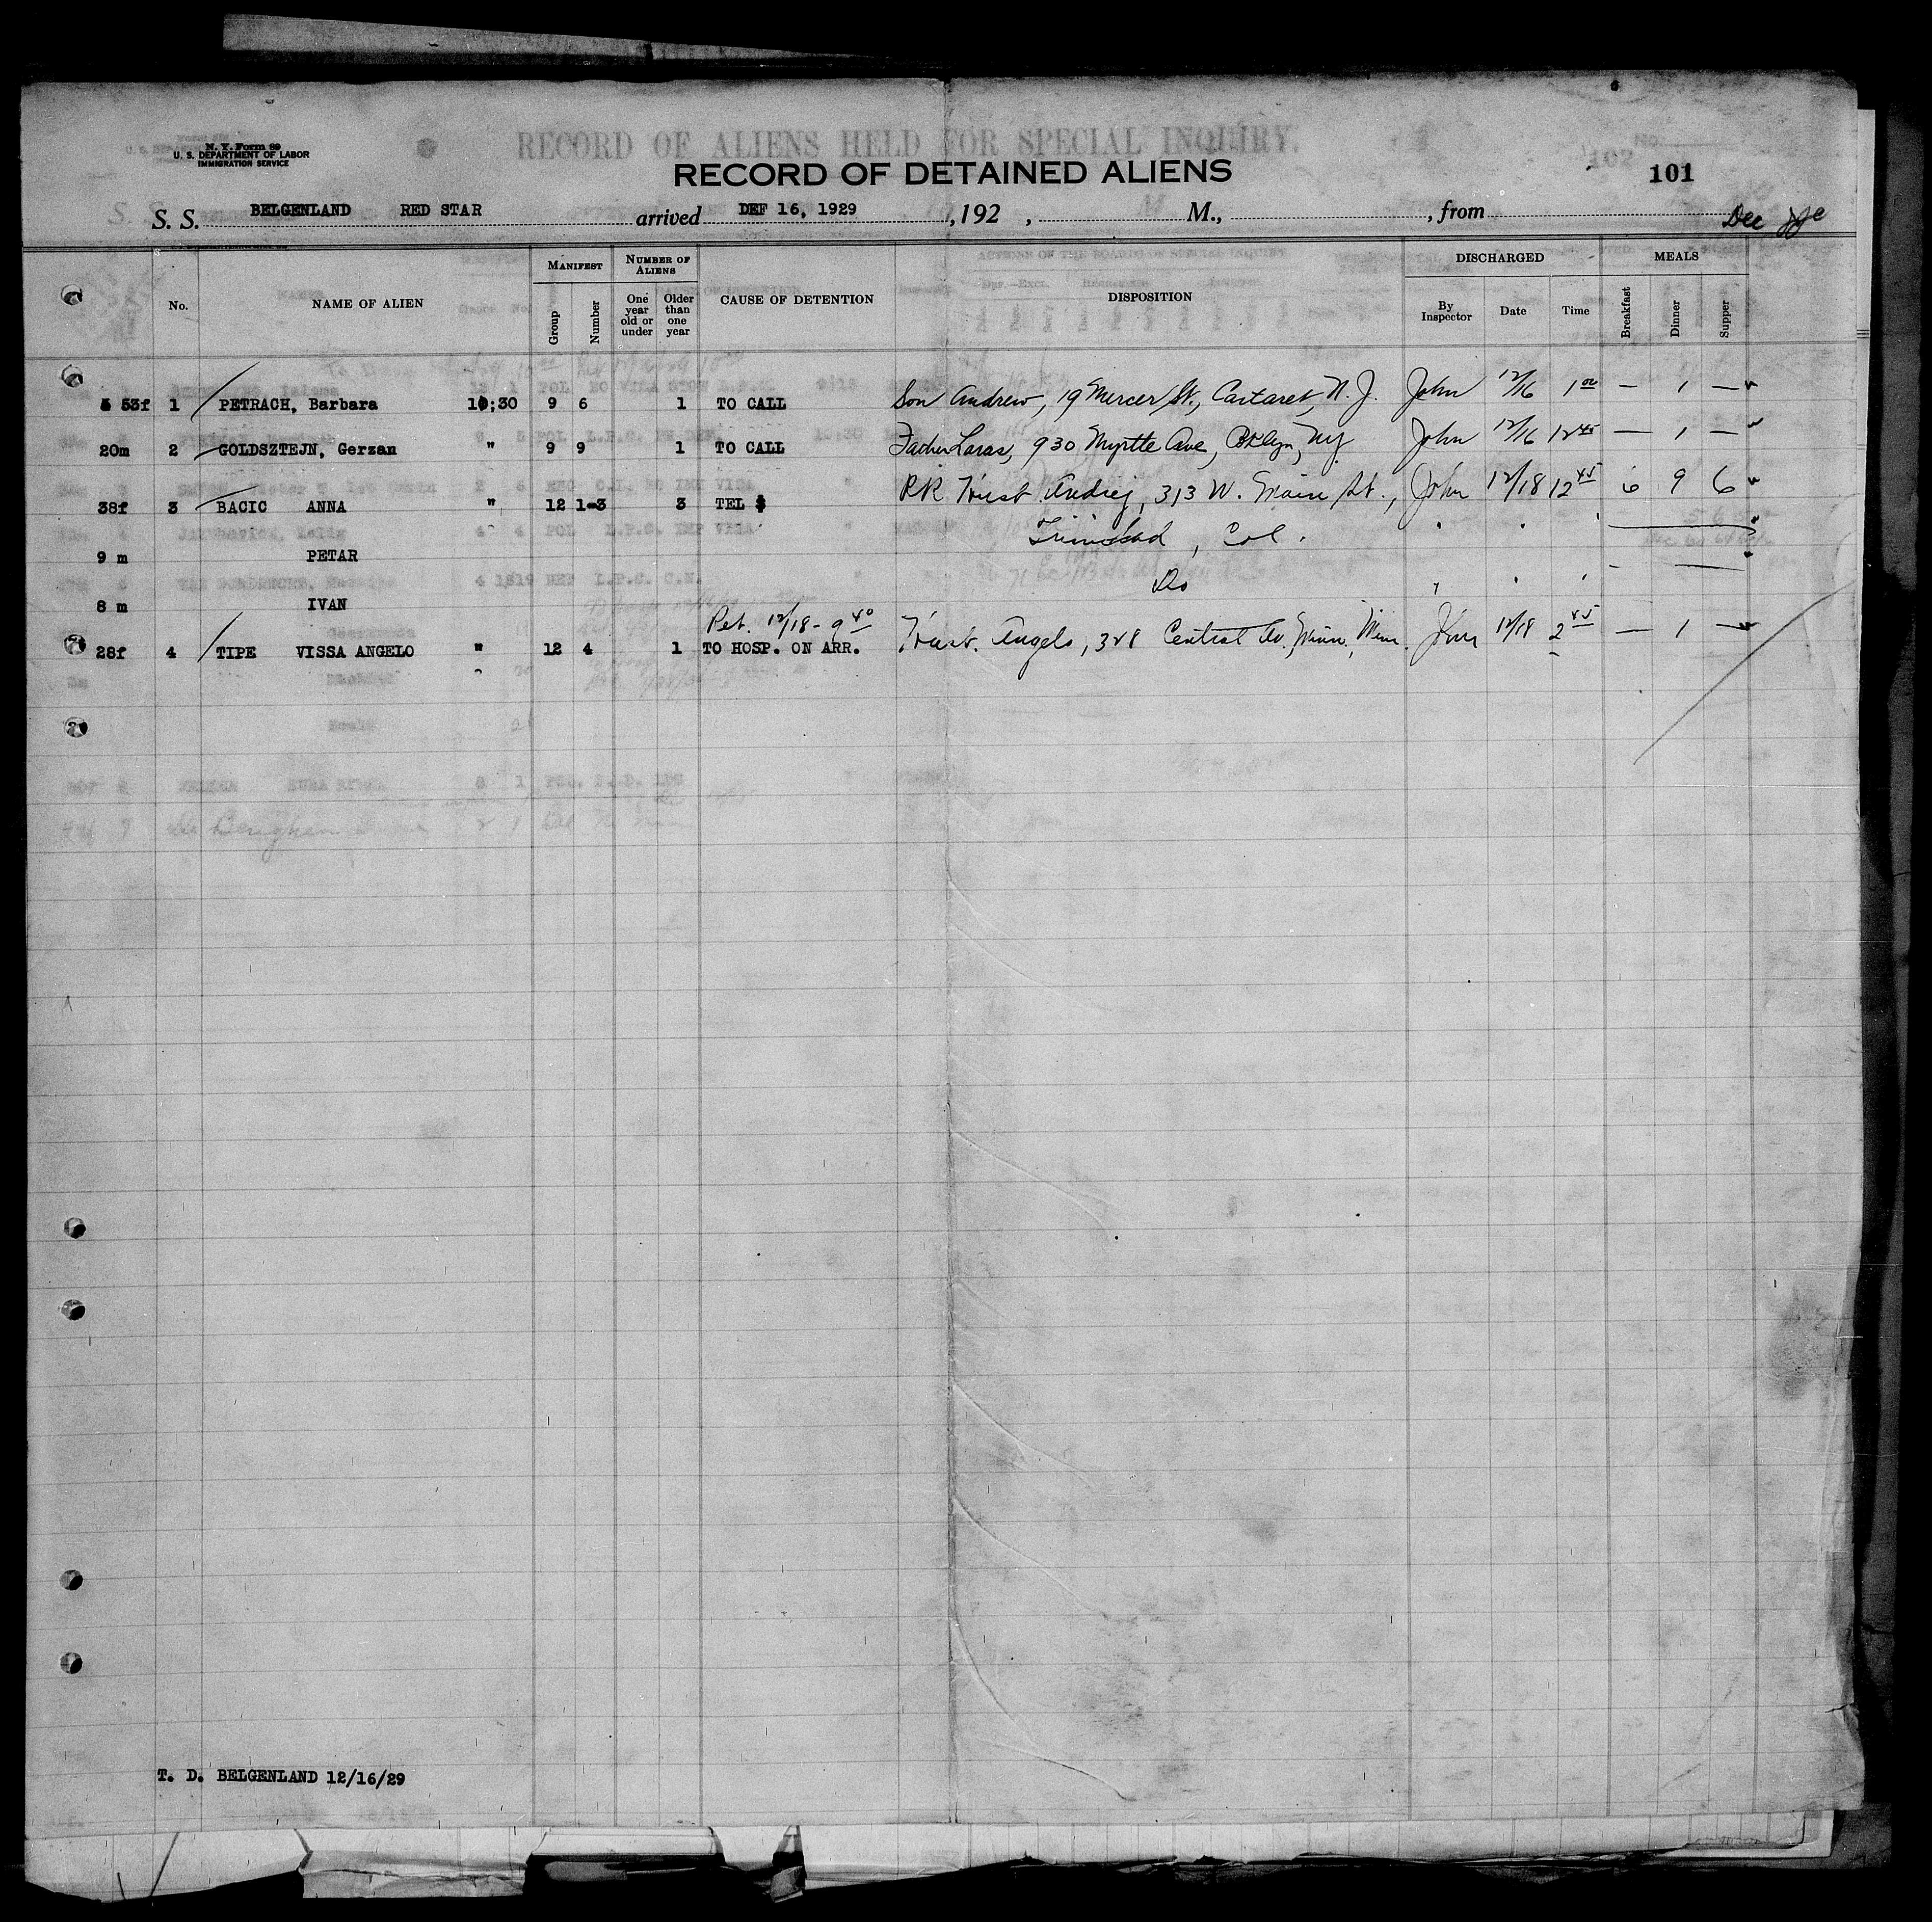 N. Y. Form 89
U. S. DEPARTMENT OF LABOR
IMMIGRATION SERVICE
RECORD OF ALIENS HELD FOR SPECIAL INQUIRY.
RECORD OF DETAINED ALIENS
102
101
S. S. BELGENLAND RED STAR arrived DEF 16, 1929 , 192 , M., , from Dec
No. NAME OF ALIEN MANIFEST Group Number NUMBER OF ALIENS One year old or under Older than one year CAUSE OF DETENTION DISPOSITION DISCHARGED By Inspector Date Time MEALS Breakfast Dinner Supper
53f 1 PETRACH, Barbara 10;30 9 6 1 TO CALL Son Andrew, 19 Mercer St., Cartaret, N. J. John 12/16 1 00 — 1 —
20m 2 GOLDSZTEJN, Gerzan " 9 9 1 TO CALL Father Laras, 930 Myrtle Ave, Bklyn, NY John 12/16 12 45 — 1 —
38f 3 BACIC ANNA " 12 1-3 3 TEL $ RR Husb Andrej, 313 W. Main St., John 12/18 12 45 6 9 6
Trinidad, Col. " " "
9 m PETAR
Do " " "
8 m IVAN
Ret. 12/18 - 9 40
28f 4 TIPE VISSA ANGELO " 12 4 1 TO HOSP. ON ARR. Husb. Angelo, 328 Central Av. Minn., Minn. John 12/18 2 45 — 1 —
T. D. BELGENLAND 12/16/29